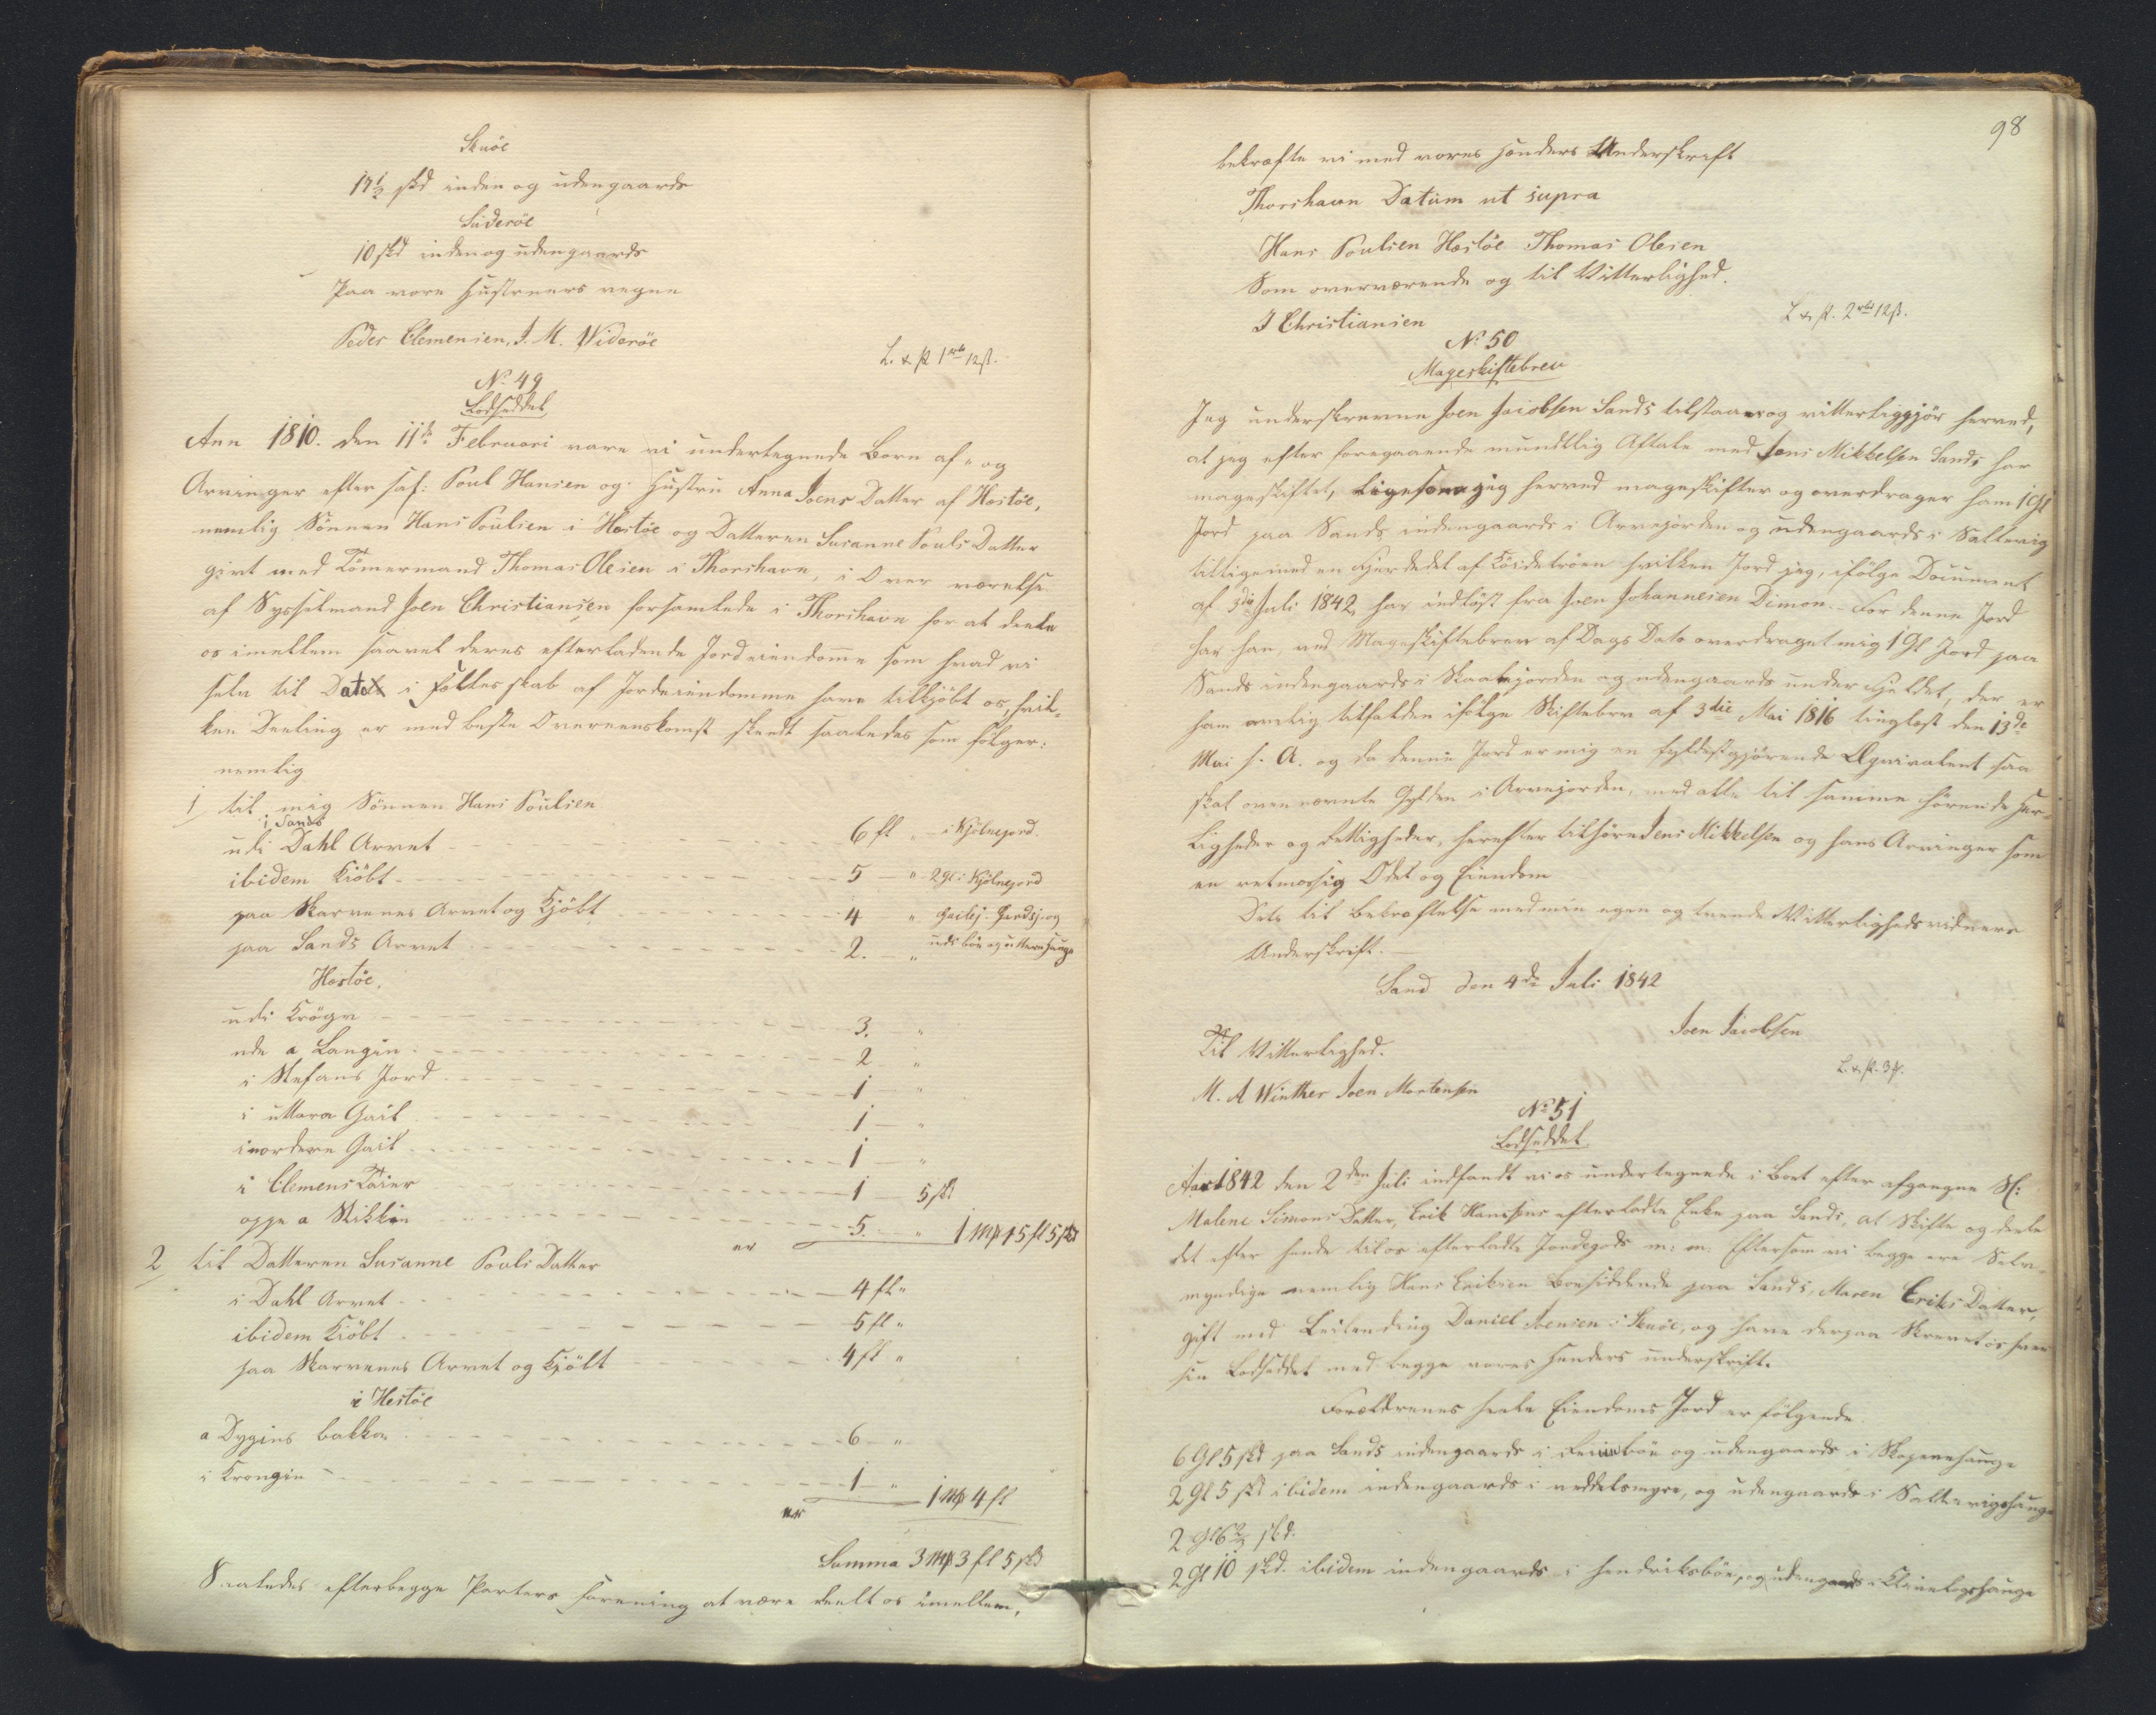 Skuöe
17½ skd inden og udengaards
Süderöe
10 skd inden og udengaards
Paa vore Hustruers vegne
Peder Clemensen, J. M. Wideröe
L. & sk 1 rbd 12 ß.
No 49
Lodseddel
Ann 1810. den 11te Februari vare vi undertegnede Børn af og
Arvinger efter sal: Poul Hansen og Hustru Anna Joens Datter af Hestöe,
nemlig Sønnen Hans Poulsen i Hestöe og Datteren Susanne Pouls Datter
givt med Tömermand Thomas Olesen i Thorshavn, i Over værelse
af Sysselmand Joen Christiansen forsamlede i Thorshavn for at deele
os imellem saavel deres efterladende Jordeiendomme som hvad vi
selv til Dato i fælles skab af Jordeiendomme have tilkjöbt os, hvil-
ken Deeling er med beste Overeenskomst skeedt saaledes som fölger:
nemlig
1 til mig Sönnen Hans Poulsen
i Sands
udi Dahl Arvet 6 fl " i Kjölnejord.
ibidem Kiöbt 5 " 2 gl: i Kjölnejord
paa Skarvenes Arvet og Kjöbt 4 "
paa Sands Arvet 2. "
Hestöe.
udi Krögv 3. "
ude a Langin 2 "
i Stefans Jord 1 "
i uttara Gail 1 "
i nordera Gail 1 "
i Clemens 1 5 skd
oppe a 5. " er 1 mk 15 fl 5 skd
2 til Datteren Susanne Pouls Datter
i Dahl Arvet 4 fl "
ibidem Kiöbt 5 fl "
paa Skarvenes Arvet og Kjöbt 4 fl "
i Hestöe
a Dygins bakkan 6 "
i Krongin 1 "
er 1 mk 4 fl
Summa 3 mk 3 fl 5 skd
Saaledes efter begge Parters forening at være deelt os imellem,
98
bekræfte vi med vores Hænders Underskrift
Thorshavn Datum ut supra
Hans Poulsen Hestöe Thomas Olesen
Som overværende og til Vitterlighed.
J Christiansen
L & sk. 2 rbd 12 ß.
No 50
Mageskiftebrev
Jeg underskrevne Joen Jacobsen Sands tilstaar og vitterliggjör herved,
at jeg efter foregaaende mundtlig Aftale med Jens Mikkelsen Sands har
mageskiftet, ligesom jeg herved mageskifter og overdrager ham 1 Gl
Jord paa Sands indengaards i Arvejorden og udengaards i Saltvig
tilligemed en Fjerdedel af hvilken Jord jeg, ifölge Document
af 3die Juli 1842, har indløst fra Joen Johannesen Dimon. For denne Jord
har han, ved Mageskiftebrev af Dags Dato overdraget mig 1 Gl Jord paa
Sands indengaards i Skaalejorden og udengaards under Fjeldet, der er
ham arvelig tilfalden ifölge Skiftebrev af 3die Mai 1816 tinglæst den 13de
Mai s. A. og da denne Jord er mig en fyldestgjørende Æqvivalent saa
skal ovennævnte Gylden i Arvejorden, med alle til samme hörende Her-
ligheder og Rettigheder, herefter tilhöre Jens Mikkelsen og hans Arvinger som
en retmæssig Odel og Eiendom
Dets til Bekræftelse med min egen og tvende Vitterlighedsvidners
Underskrift.
Sand den 4de Juli 1842
Joen Jacobsen
Til Vitterlighed.
M. A Winther Joen Mortensen
L. & sk. 3 ß.
No 51
Lodseddel
Aar 1842 den 2den Juli indfandt vi os undertegnede i Boet efter afgangne Sl:
Malene Simons Datter, Erik Hansens efterladte Enke paa Sands, at skifte og deele
det efter hende til os efterladte Jordegods m: m: Eftersom vi begge ere Selv-
myndige nemlig Hans Eriksen Boesiddende paa Sands, Maren Eriks Datter,
gift med Leilending Daniel Joensen i Skuöe, og have derpaa Skrevet os hver
sin Lodseddel med begge vores Hænders underskrift.
Forældrenes heele Eiendoms Jord er fölgende
6 Gl 5 skd paa Sands indengaards i og udengaards i Skopenehauge
2 Gl 5 skd ibidem indengaards i , og udengaards i Saltevigshauge
2 Gl 6⅔ skd.
2 Gl 10 skd. ibidem indengaards i Hendriksböe, og udengaards i